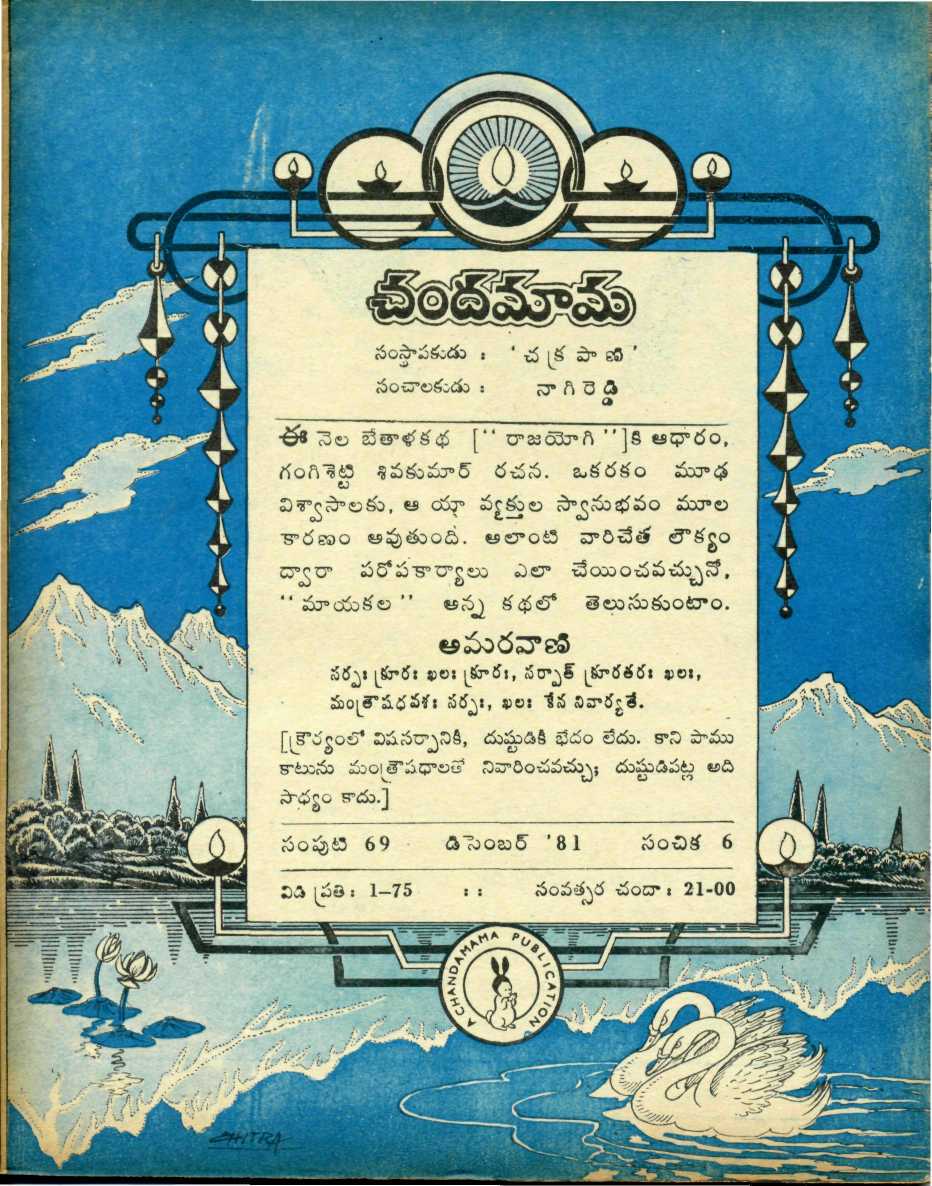 చందమామ
సంస్థాపకుడు : ' చ క్ర పా ణి '
సంచాలకుడు : నా గి రె డ్డి
ఈ నెల బేతాళకథ [“ రాజయోగి ”]కి ఆధారం,
గంగిశెట్టి శివకుమార్ రచన. ఒకరకం మూఢ
విశ్వాసాలకు, ఆ యా వ్యక్తుల స్వానుభవం మూల
కారణం అవుతుంది. అలాంటి వారిచేత లౌక్యం
ద్వారా పరోపకార్యాలు ఎలా చేయించవచ్చునో,
“ మాయకల ” అన్న కథలో తెలుసుకుంటాం.
అమరవాణి
సర్పః క్రూరః ఖలః క్రూరః, సర్పాత్ క్రూరతరః ఖలః,
మంత్రౌషధవశః సర్పః, ఖలః కేన నివార్యతే.
[క్రౌర్యంలో విషసర్పానికీ, దుష్టుడికీ భేదం లేదు. కాని పాము
కాటును మంత్రౌషధాలతో నివారించవచ్చు; దుష్టుడిపట్ల అది
సాధ్యం కాదు.]
సంపుటి 69 డిసెంబర్ '81 సంచిక 6
విడి ప్రతి : 1–75 : : సంవత్సర చందా : 21-00
A CHANDAMAMA PUBLICATION
CHITRA